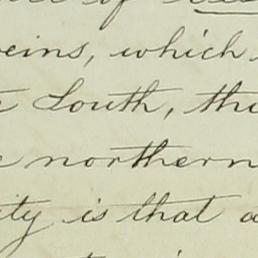 of
veins, which
South, the
northern
ity is that a